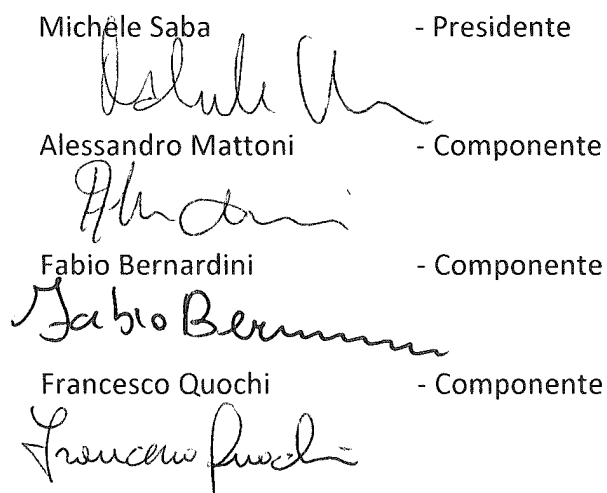 Michele Saba - Presidente
Alessandro Mattoni - Componente
Fabio Bernardini - Componente
Fabio Ber
Francesco Quochi - Componente
Francesco Quochi